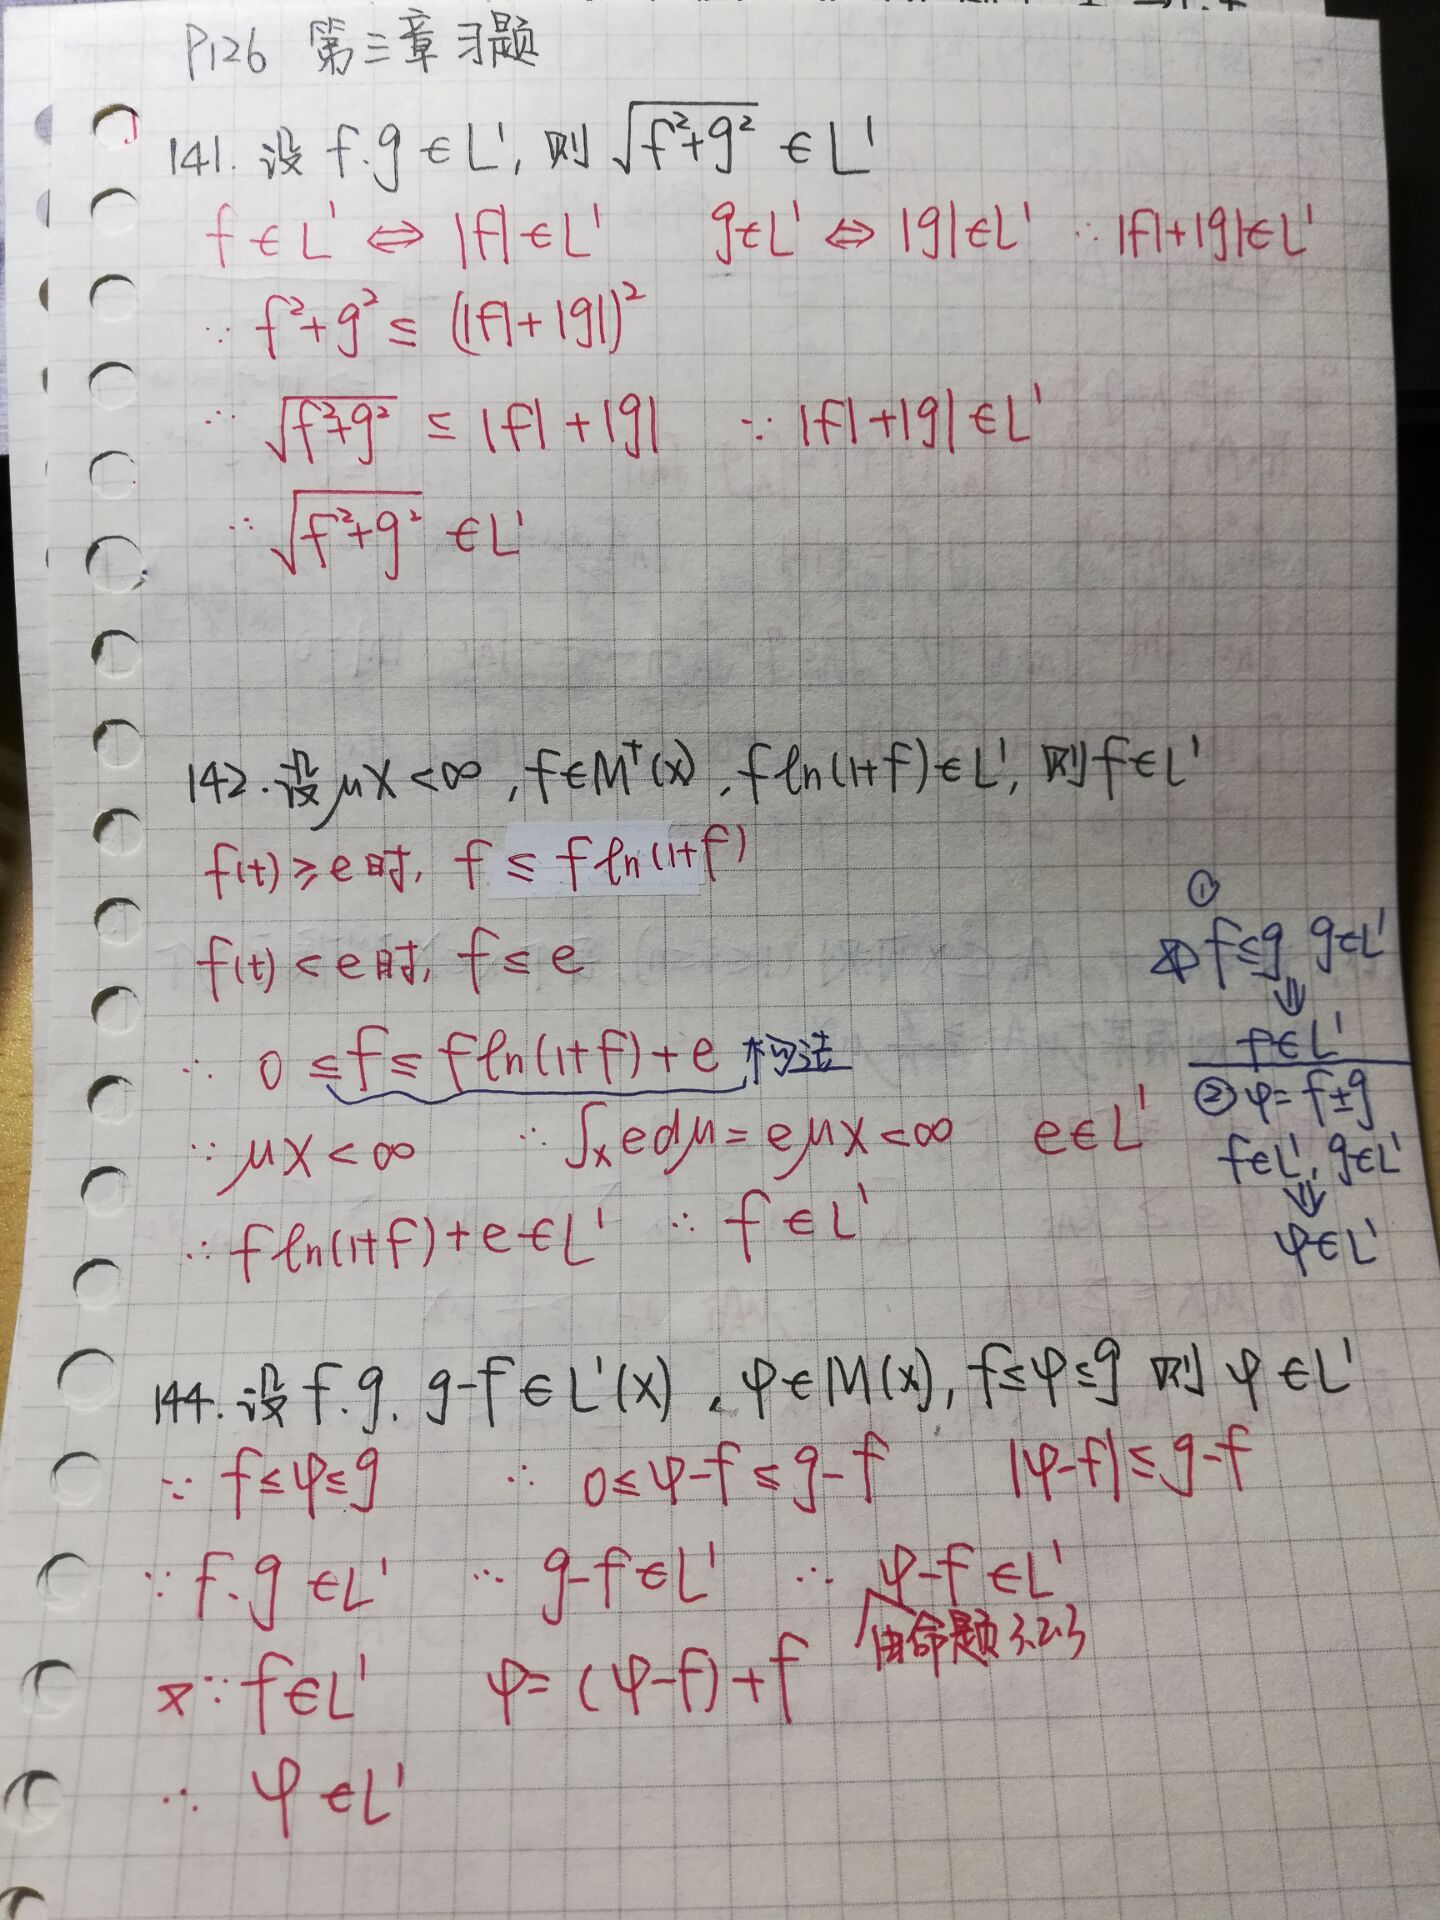 P126 第三章习题
141. 设 f.g ∈ L¹, 则 √(f²+g²) ∈ L¹
f ∈ L¹ ⇔ |f| ∈ L¹ g∈L¹ ⇔ |g|∈L¹ ∴ |f|+|g|∈L¹
∵ f²+g² ≤ (|f|+|g|)²
∴ √(f²+g²) ≤ |f|+|g| ∵ |f|+|g| ∈ L¹
∴ √(f²+g²) ∈ L¹
142. 设 μX < ∞, f∈M⁺(X), f ln(1+f) ∈ L¹, 则 f∈L¹
f(t) ≥ e 时, f ≤ f ln(1+f)
f(t) < e 时, f ≤ e
∴ 0 ≤ f ≤ f ln(1+f) + e 构造
∵ μX < ∞ ∴ ∫ₓ e dμ = e μX < ∞ e ∈ L¹
∴ f ln(1+f) + e ∈ L¹ ∴ f ∈ L¹
①
f ≤ g g∈L¹
⇓
f∈L¹
② φ = f±g
f∈L¹, g∈L¹
⇓
φ∈L¹
144. 设 f.g. g-f ∈ L¹(X), φ∈M(X), f≤φ≤g 则 φ ∈ L¹
∵ f≤φ≤g ∴ 0≤φ-f≤g-f |φ-f|≤g-f
∵ f.g ∈L¹ ∴ g-f∈L¹ ∴ φ-f ∈L¹
由命题3.2.3
又∵ f∈L¹ φ=(φ-f)+f
∴ φ ∈L¹